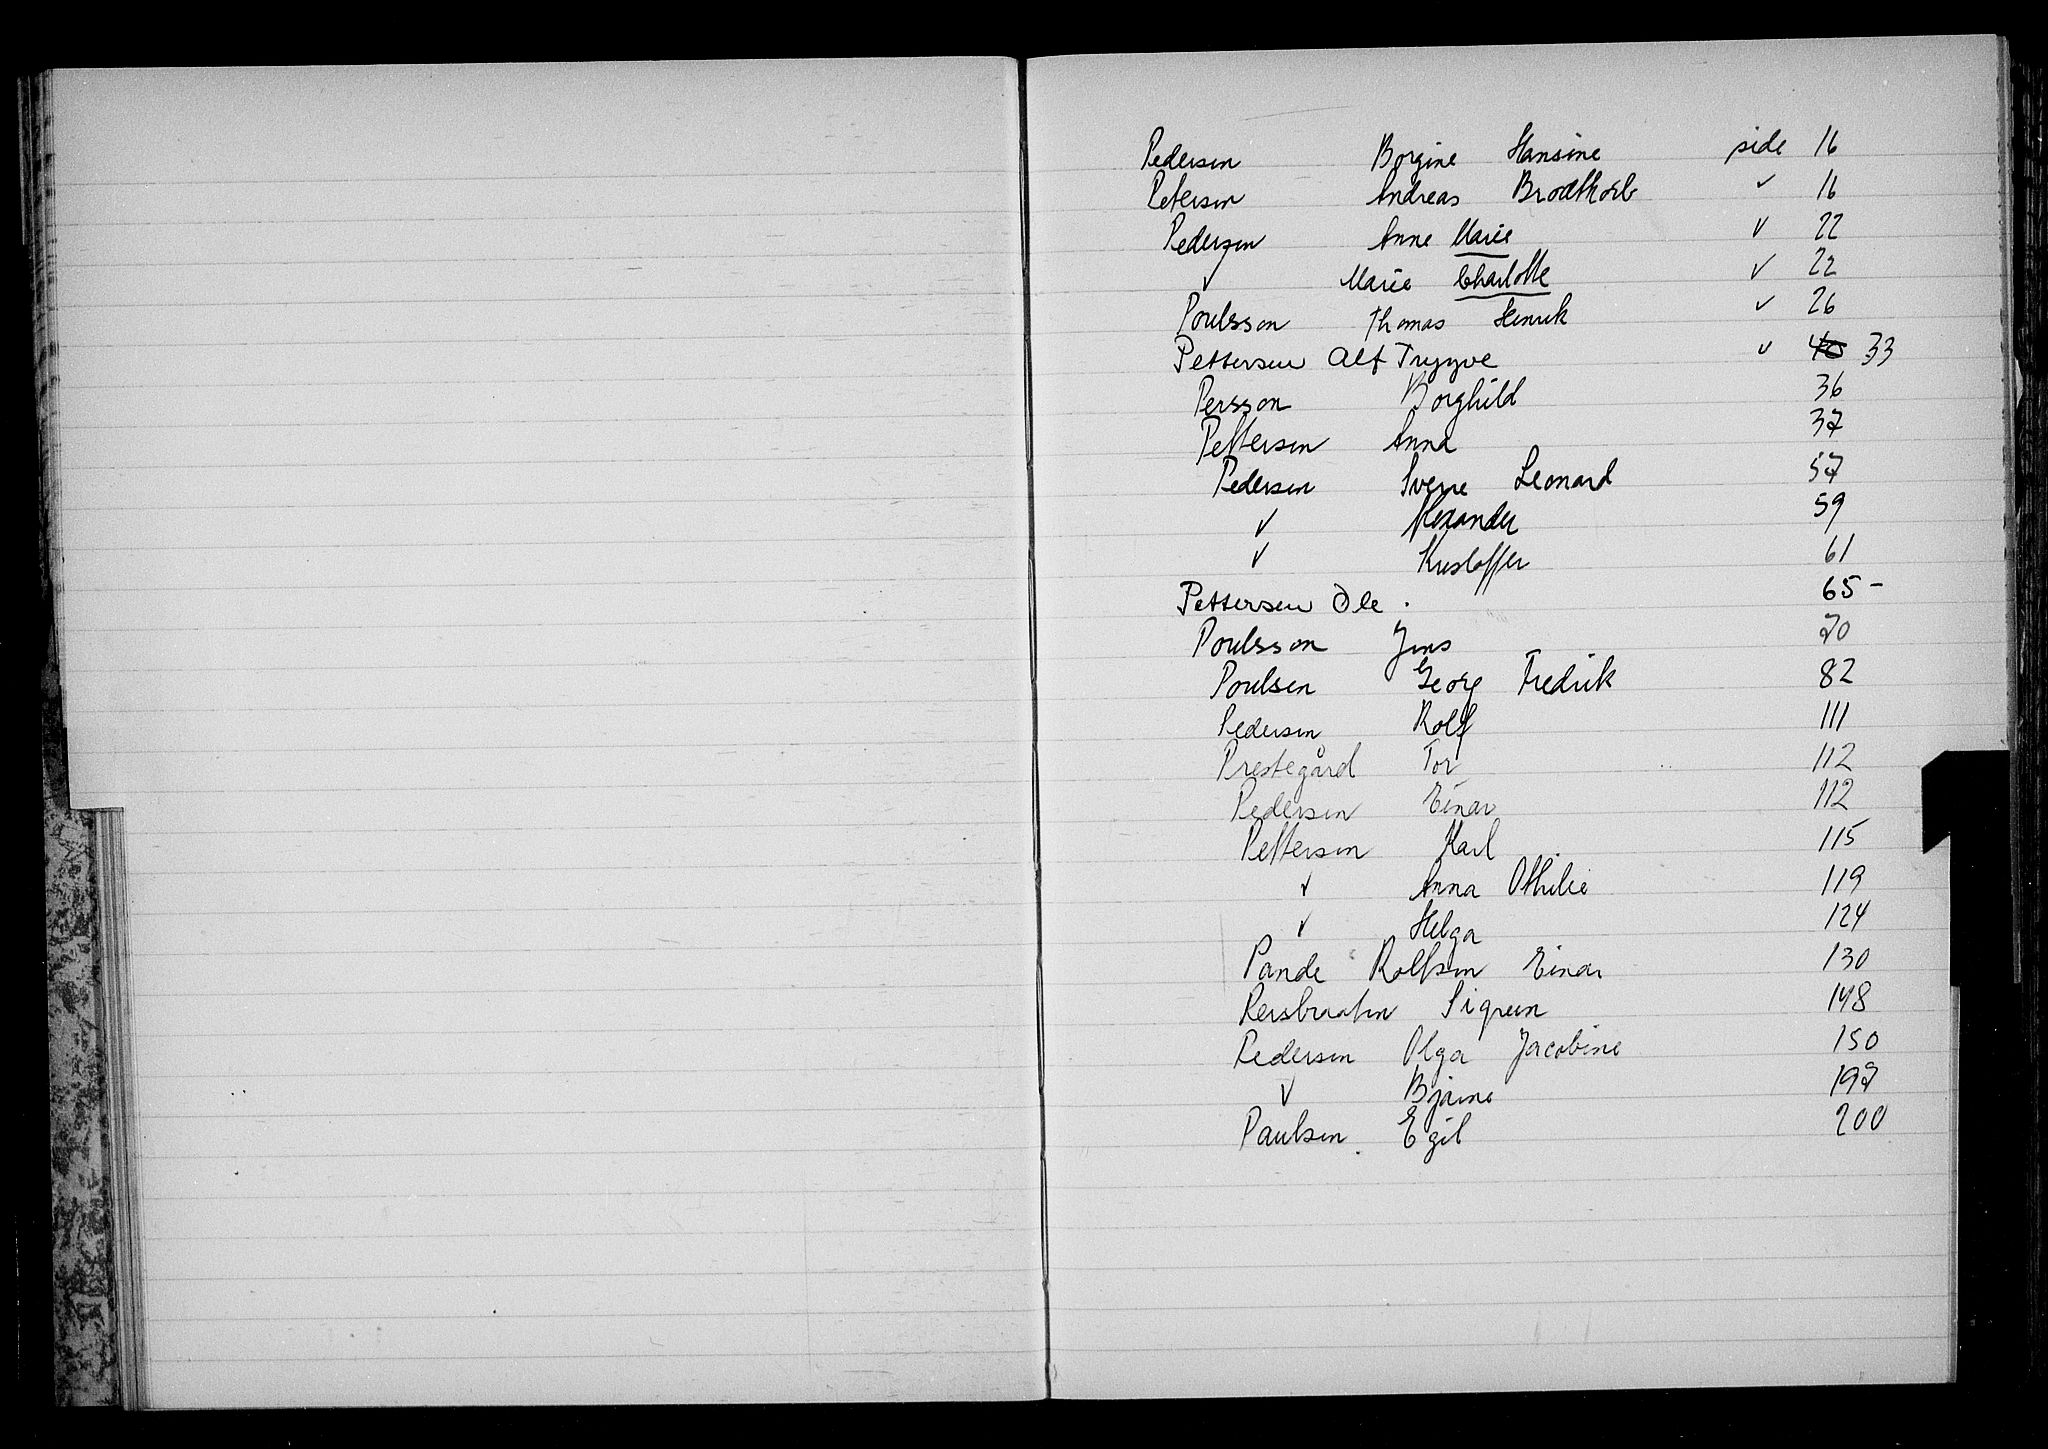 Pedersen Borgine Hansine side 16
Petersen Andreas Brodtkorb ✓ 16
Pedersen Anne Marie ✓ 22
✓ Marie Charlotte ✓ 22
Poulsson Thomas Henrik ✓ 26
Pettersen Alf Trygve ✓ 40 33
Persson Borghild 36
Pettersen Anna 37
Pedersen Sverre Leonard 57
✓ Alexander 59
✓ Kristoffer 61
Pettersen Ole . 65 -
Poulsson Jens 70
Poulsen Georg Fredrik 82
Pedersen Rolf 111
Prestegård Tor 112
Pedersen Einar 112
Pettersen Karl 115
✓ Anna Othilie 119
✓ Helga 124
Pande Rolfsen Einar 130
Persbraaten Sigrun 148
Pedersen Olga Jacobine 150
✓ Bjarne 197
Paulsen Egil 200